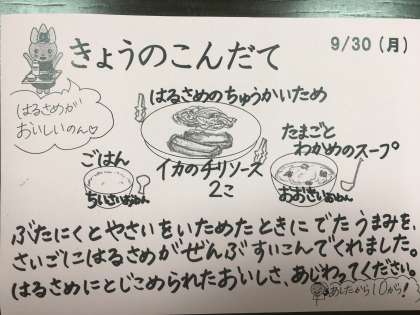 きょうのこんだて
9/30(月)
はるさめが
おいしいのん♡
はるさめのちゅうかいため
たまごと
わかめのスープ
ごはん
ちいさいおわん
イカのチリソース
2こ
おおきいおわん
ぶたにくとやさいをいためたときにでたうまみを、
さいごにはるさめがぜんぶすいこんでくれました。
はるさめにとじこめられたおいしさ、あじわってください。
あしたから10から!